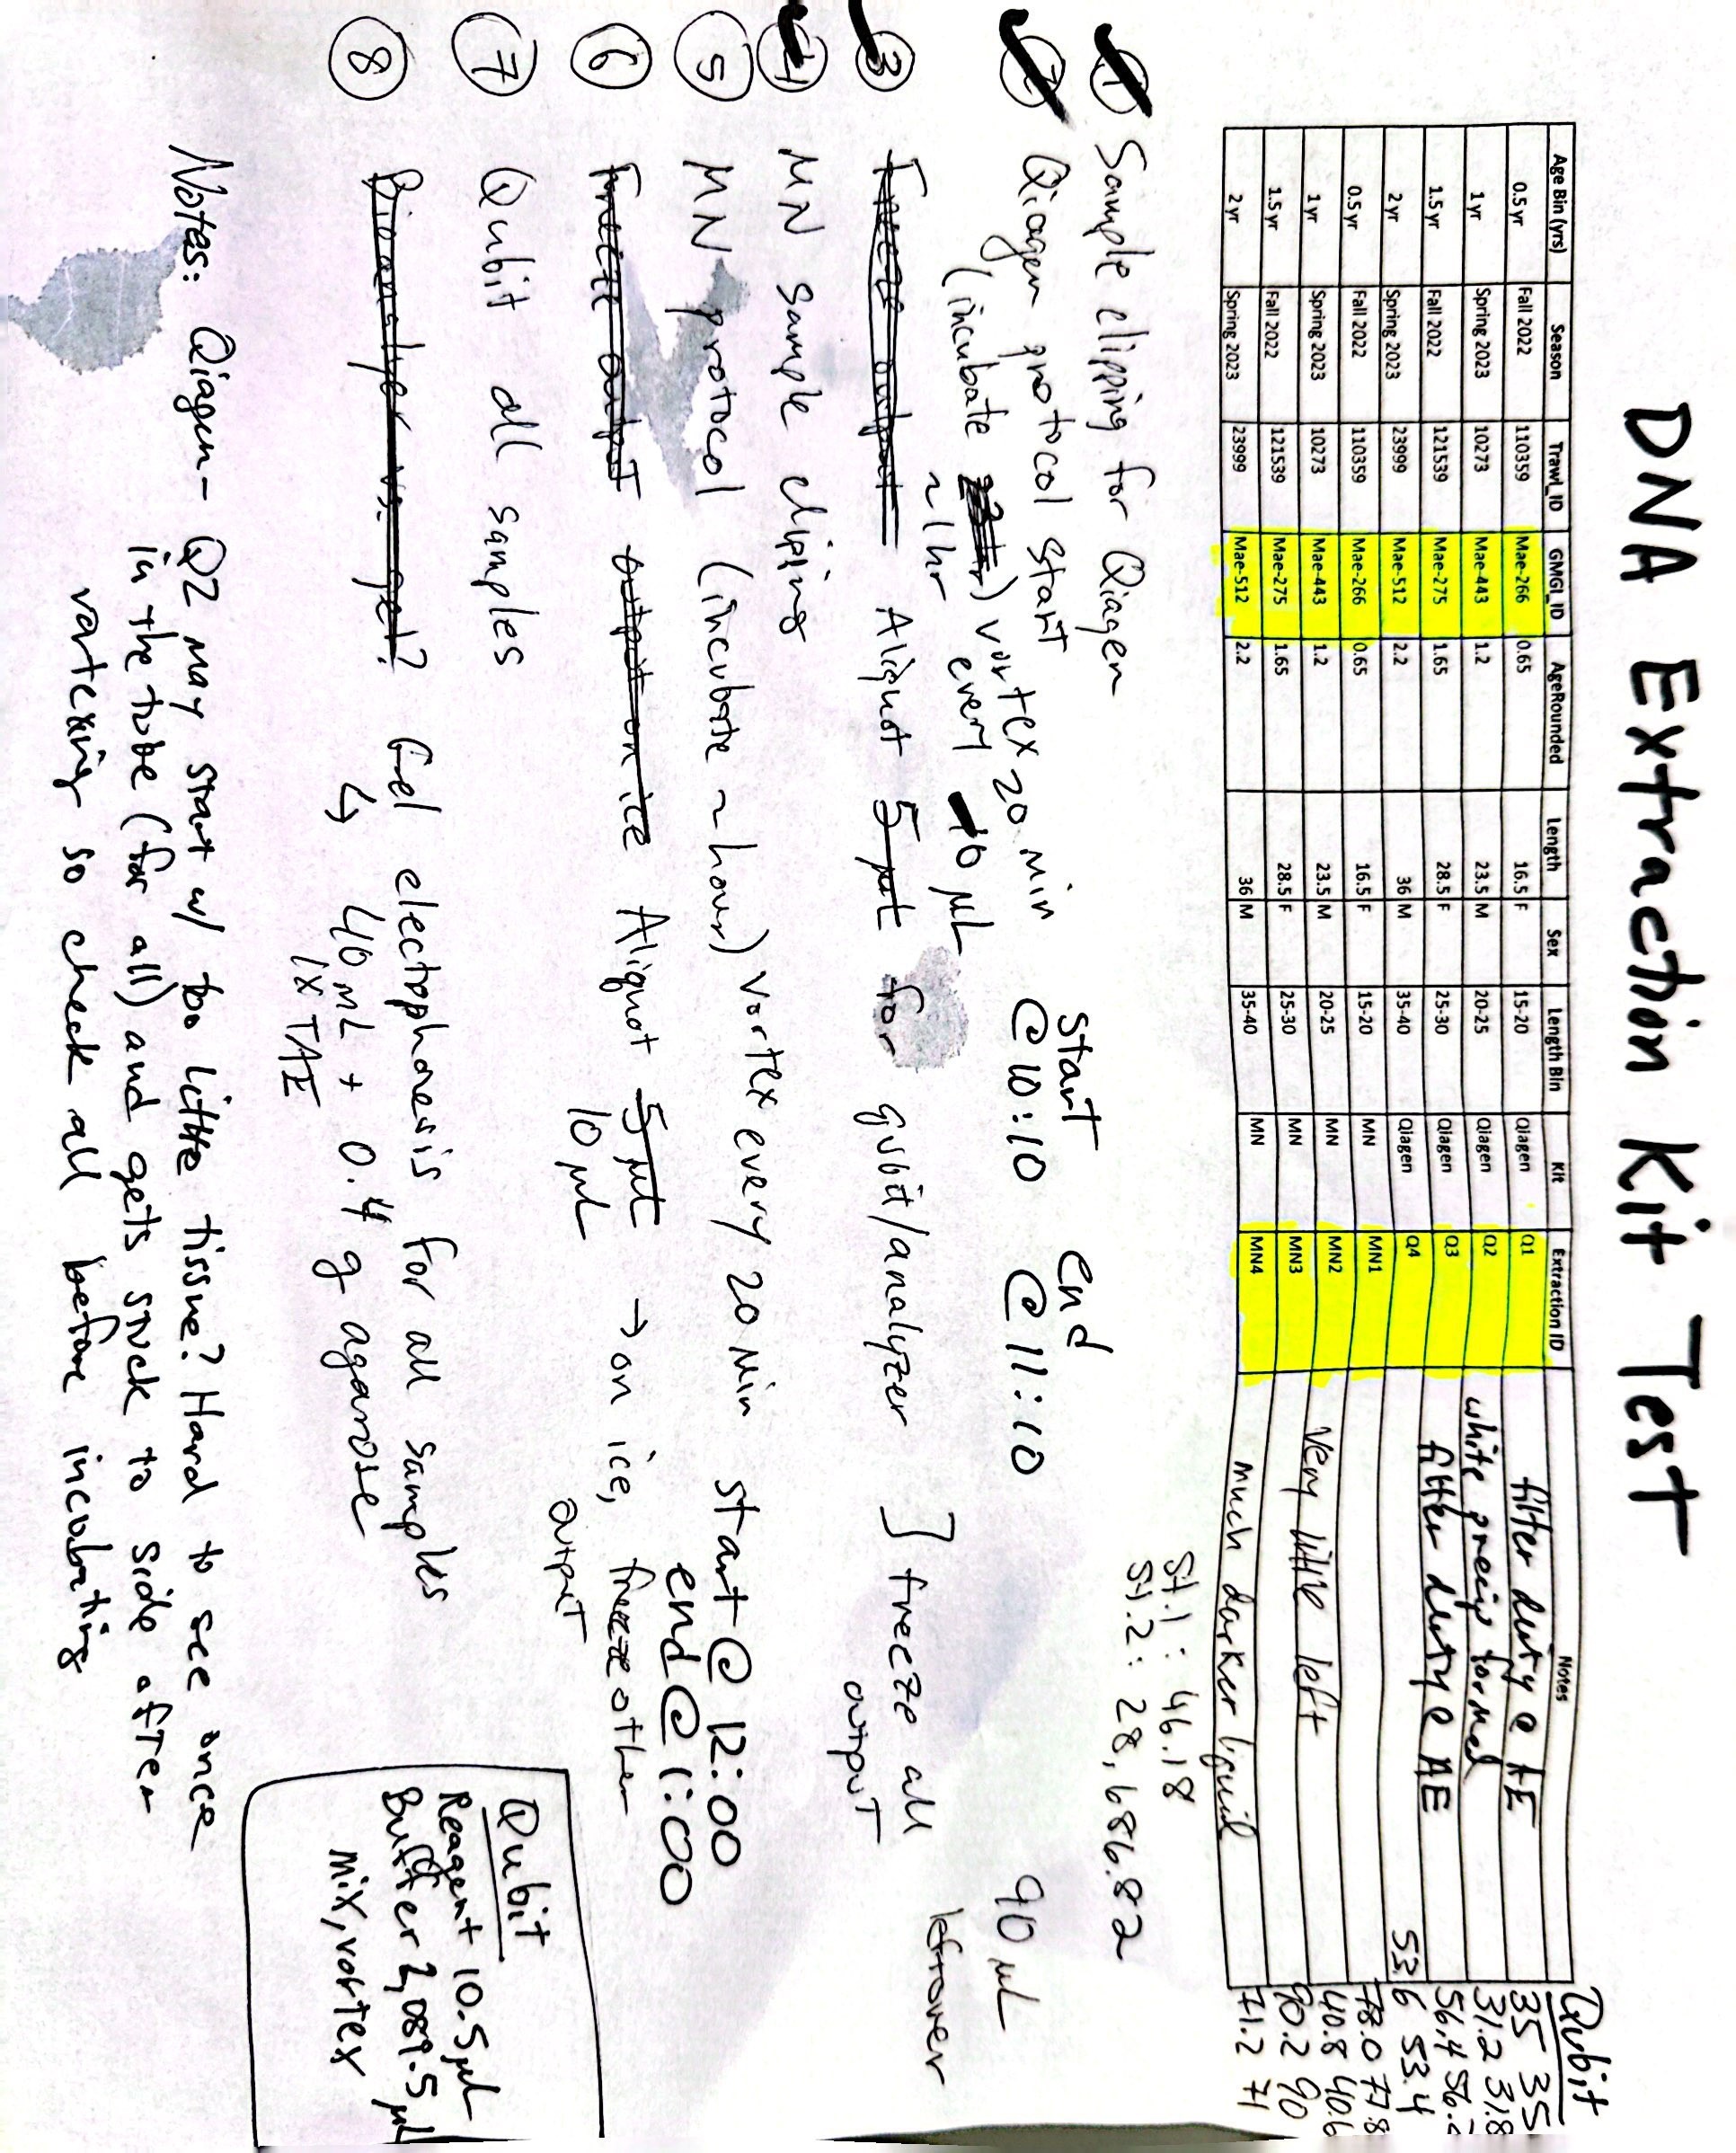 DNA Extraction Kit Test
Qubit
Age Bin (yrs) Season Trawl_ID GMGI_ID AgeRounded Length Sex Length Bin Kit Extraction ID Notes
0.5 yr Fall 2022 110359 Mae-266 0.65 16.5 F 15-20 Qiagen Q1 filter duty @ AE 35 35
1 yr Spring 2023 10273 Mae-443 1.2 23.5 M 20-25 Qiagen Q2 white precip formed 31.2 31.8
1.5 yr Fall 2022 121539 Mae-275 1.65 28.5 F 25-30 Qiagen Q3 filter duty @ AE 56.4 56.2
2 yr Spring 2023 23999 Mae-512 2.2 36 M 35-40 Qiagen Q4 53.6 53.4
0.5 yr Fall 2022 110359 Mae-266 0.65 16.5 F 15-20 MN MN1 78.0 77.8
1 yr Spring 2023 10273 Mae-443 1.2 23.5 M 20-25 MN MN2 very little left 40.8 40.6
1.5 yr Fall 2022 121539 Mae-275 1.65 28.5 F 25-30 MN MN3 90.2 90
2 yr Spring 2023 23999 Mae-512 2.2 36 M 35-40 MN MN4 much darker liquid 71.2 71
St.1: 46.18
St.2: 28,686.82
1 Sample clipping for Qiagen
2 Qiagen protocol start
(incubate ~1hr) vortex every 20 min
start @ 10:10 end @ 11:10
90 µL leftover
10 µL
3 Freeze output Aliquot 5 µL for qubit/analyzer ] freeze all
output
4 MN sample clipping
5 MN protocol (incubate ~hour) vortex every 20 min start @ 12:00
end @ 1:00
6 Freeze output output on ice Aliquot 5 µL → on ice, freeze other
10 µL output
7 Qubit all samples
8 Bioanalyer vs. gel? Gel electophoresis for all samples
↳ 40 mL + 0.4 g agarose
1X TAE
Qubit
Reagent 10.5 µL
Buffer 2,089.5 µL
mix, vortex
Notes: Qiagen- Q2 may start w/ too little tissue? Hard to see once
in the tube (for all) and gets stuck to side after
vortexing so check all before incubating